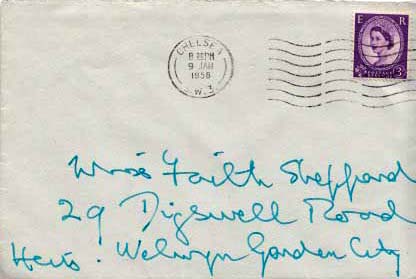 CHELSEA
8 PM
9 JAN
1958
S.W.3
E R
3D
Miss Faith Sheppard
29 Digswell Road
Welwyn Garden City
Herts.